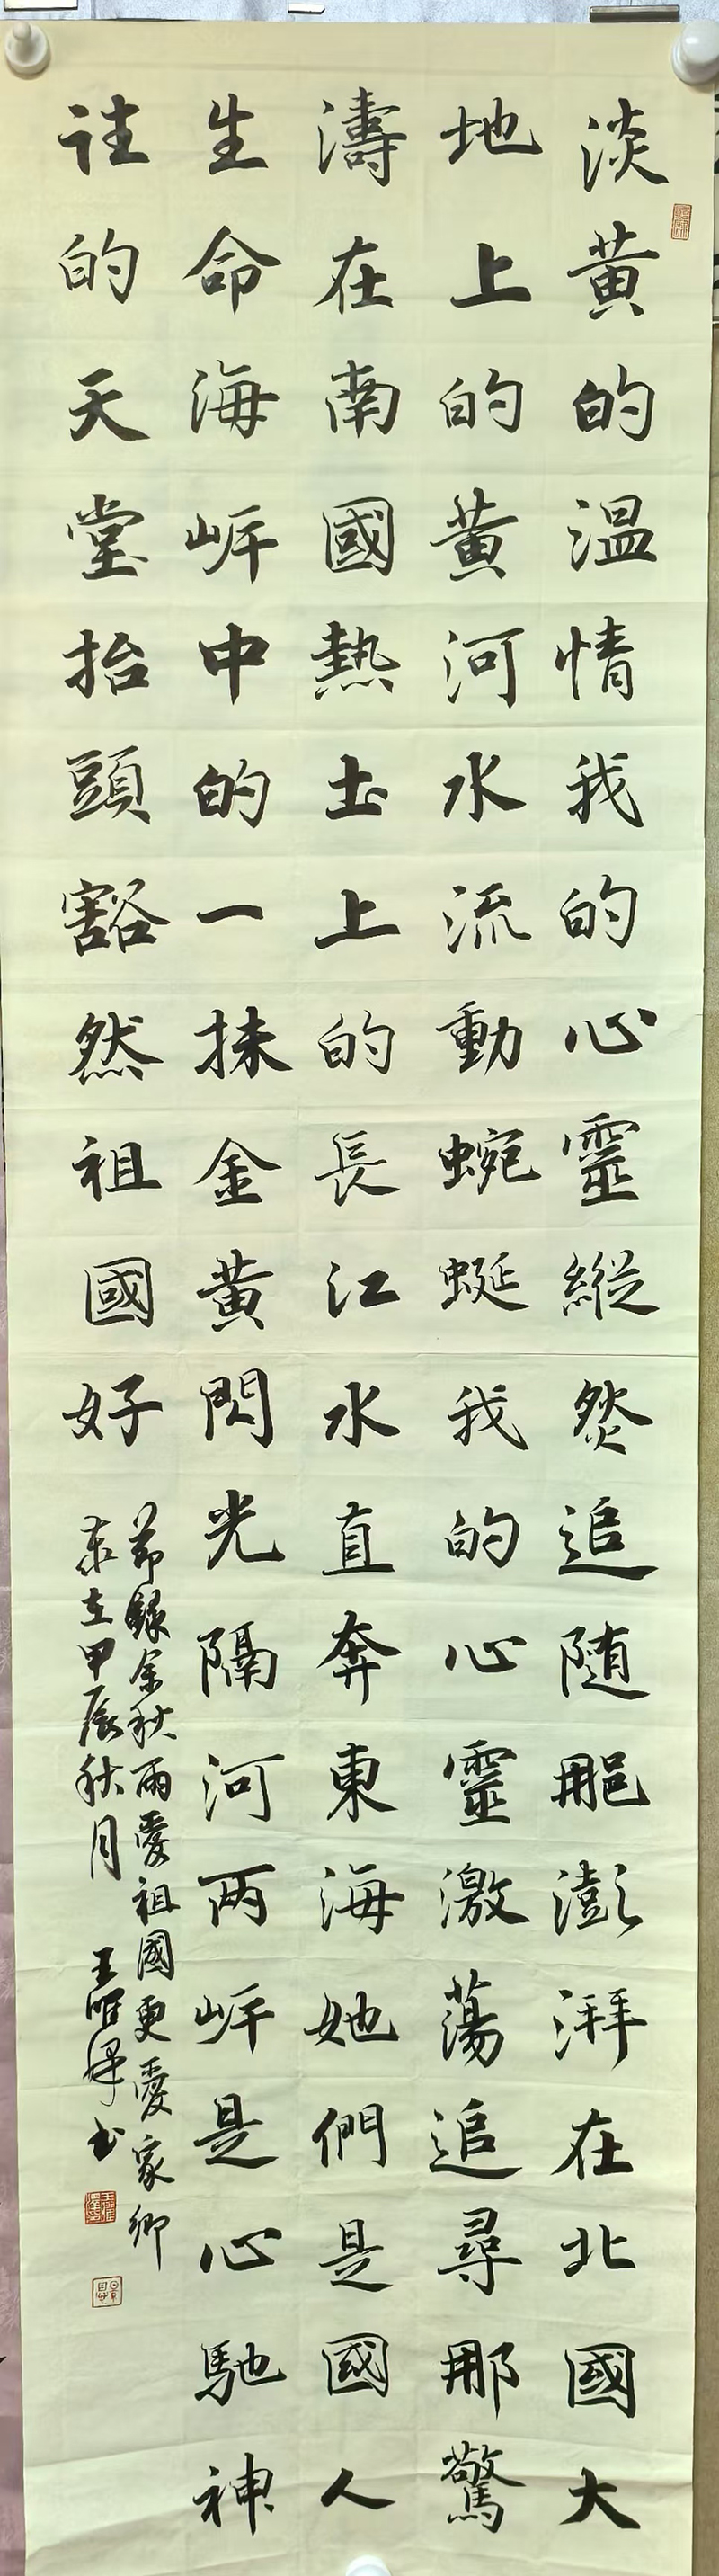 淡黄的温情我的心靈縱然追随那澎湃在北國大
地上的黄河水流動蜿蜒我的心靈激蕩追尋那驚
濤在南國熱土上的長江水直奔東海她們是國人
生命海岸中的一抹金黄閃光隔河两岸是心馳神
往的天堂抬頭豁然祖國好
節録余秋雨愛祖國更愛家鄉
歲在甲辰秋月 王书